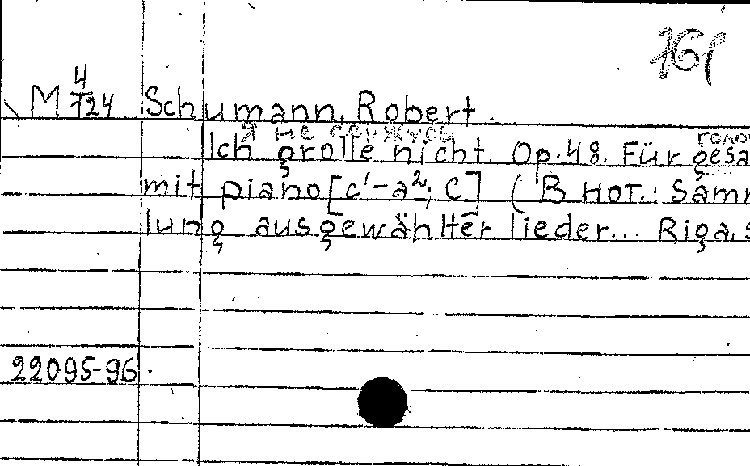 M 4/724 Schumann, Robert.
Я не сержусь
Ich grolle nicht. Op. 48. Für gesa
mit piano [c'-a²; C] (В нот.: Samm
lung ausgewählter lieder... Riga, s
22095-96